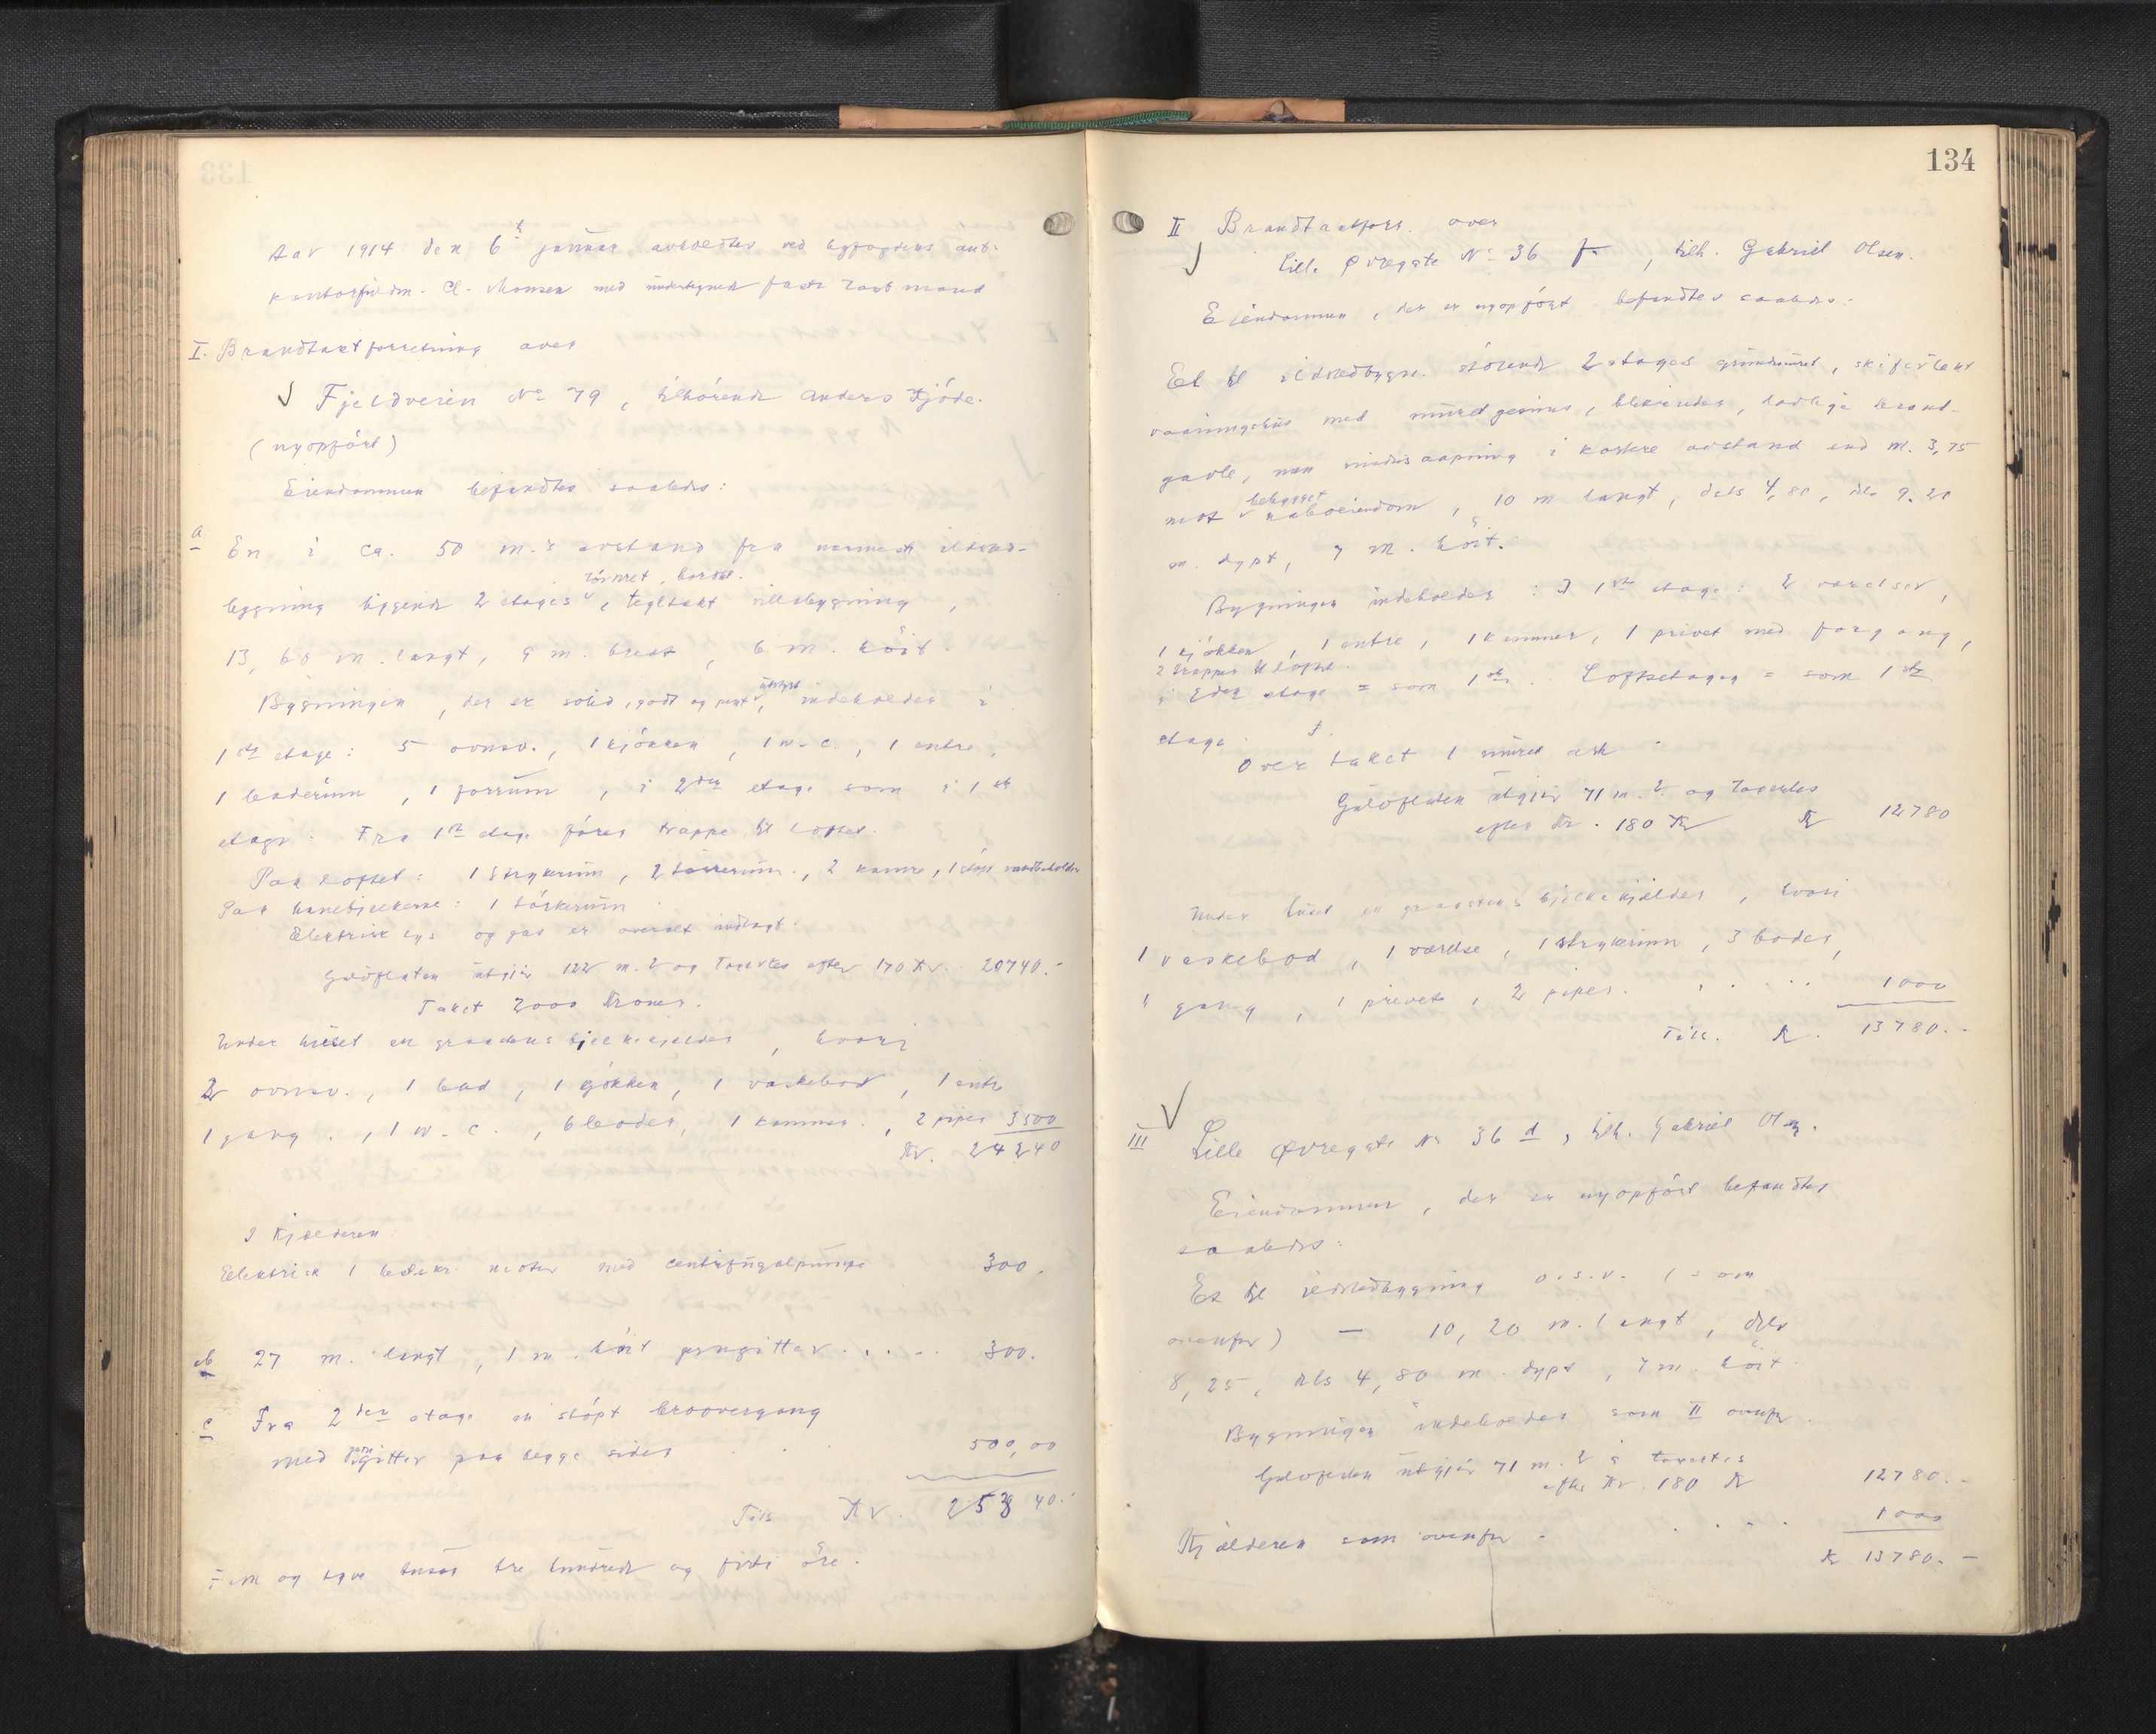 Aar 1914 den 6 t januar avholdtes ved byfogdens aut.
kontorfuldm. Cl. Monsen med undertegnede faste taxtmænd
I. Brandtaxtforretning over
Fjeldveien No 79, tilhörende Anders Fjöse.
(nyopfört)
Eiendommen befandtes saaledes:
a En i ca. 50 m.s avstand fra nærmeste ildsted-
tömret, bordkl.
bygning liggende 2 etages, tegltakt villabygning,
13,60 m. langt, 9 m. bredt, 6 m. höit.
Bygningen, der er solid, godt og pent utstyrt, indeholder i
1ste etage: 5 ovnsv., 1 kjökken, 1 w.c., 1 entre,
1 baderum, 1 forrum, i 2den etage som i 1ste
etage. Fra 1ste etage förer trappe til loftet.
Paa loftet: 1 strykerum, 2 törrerum, 2 kamre, 1 stöpt vandbeholder
Paa hanebjelkerne: 1 törkerum.
Elektrisk lys og gas er overalt indlagt.
Gulvflaten utgjör 122 m.2 og taxertes efter 170 Kr. 20740.-
Taket 2000 Kroner.
Under huset en graastens bjelkekjelder, hvori
2 ovnsv., 1 bad, 1 kjökken, 1 vaskebod, 1 entre
1 gang, 1 w.c., 6 boder, 1 kammer, 2 piper 3500
Kr. 24240
I Kjælderen
Elektrisk 1 hestekr. motor med centrifugalpumpe 300.
b 27 m. langt, 1 m. höit jerngitter . . . . 300.
c Fra 2den etage en stöpt broovergang
med jerngitter paa begge sider 500,00
Tils. Kr. 25340.-
Fem og tyve tusen tre hundrede og firti öre.
134
II Brandtaxtfors. over
Lille Øvregate No 36 f, tilh. Gabriel Olsen.
Eiendommen, der er nyopfört befandtes saaledes:
Et til ildstedbygn. stöende 2 etages grundmuret, skifertækt
vaaningshus med muret gesims, blikrender, lovlige brand-
gavle, uten vindusaapning i kortere avstand end m. 3,75
mot bebygget naboeiendom, 10 m langt, dels 4,80, dels 9.20
m. dypt, 7 m. höit.
Bygningen indeholder: I 1ste etage: 2 værelser,
1 kjökken, 1 entre, 1 kammer, 1 privet med forgang,
2 trapper til loftet.
i 2den etage = som 1ste. Loftsetagen = som 1ste
etage.
Over taket 1 muret ark.
Gulvflaten utgjör 71 m.2 og taxertes
efter Kr. 180 Kr Kr 12780
Under huset en graastens bjelkekjelder, hvori
1 vaskebod, 1 værelse, 1 strykerum, 3 boder,
1 gang, 1 privet, 2 piper. . . . . 1000
Tils. Kr. 13780.-
III Lille Øvregate No 36 d, tilh. Gabriel Olsen.
Eiendommen, der er nyopfört befandtes
saaledes:
Et til ildstedbygning o.s.v. (som
ovenfor) — 10,20 m. langt, dels
8,25, dels 4,80 m. dypt, 7 m. höit.
Bygningen indeholder som II ovenfor.
Gulvflaten utgjör 71 m.2 å taxertes
efter Kr. 180 Kr 12780.-
Kjælderen som ovenfor . . . . 1000
Kr 13780.-